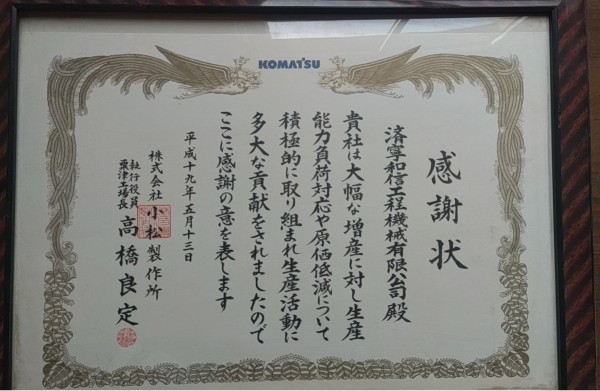 KOMATSU
感謝状
済寧和信工程機械有限公司殿
貴社は大幅な増産に対し生産
能力負荷対応や原価低減について
積極的に取り組まれ生産活動に
多大な貢献をされましたので
ここに感謝の意を表します
平成十九年五月十三日
株式会社小松製作所
執行役員
粟津工場長
高橋良定